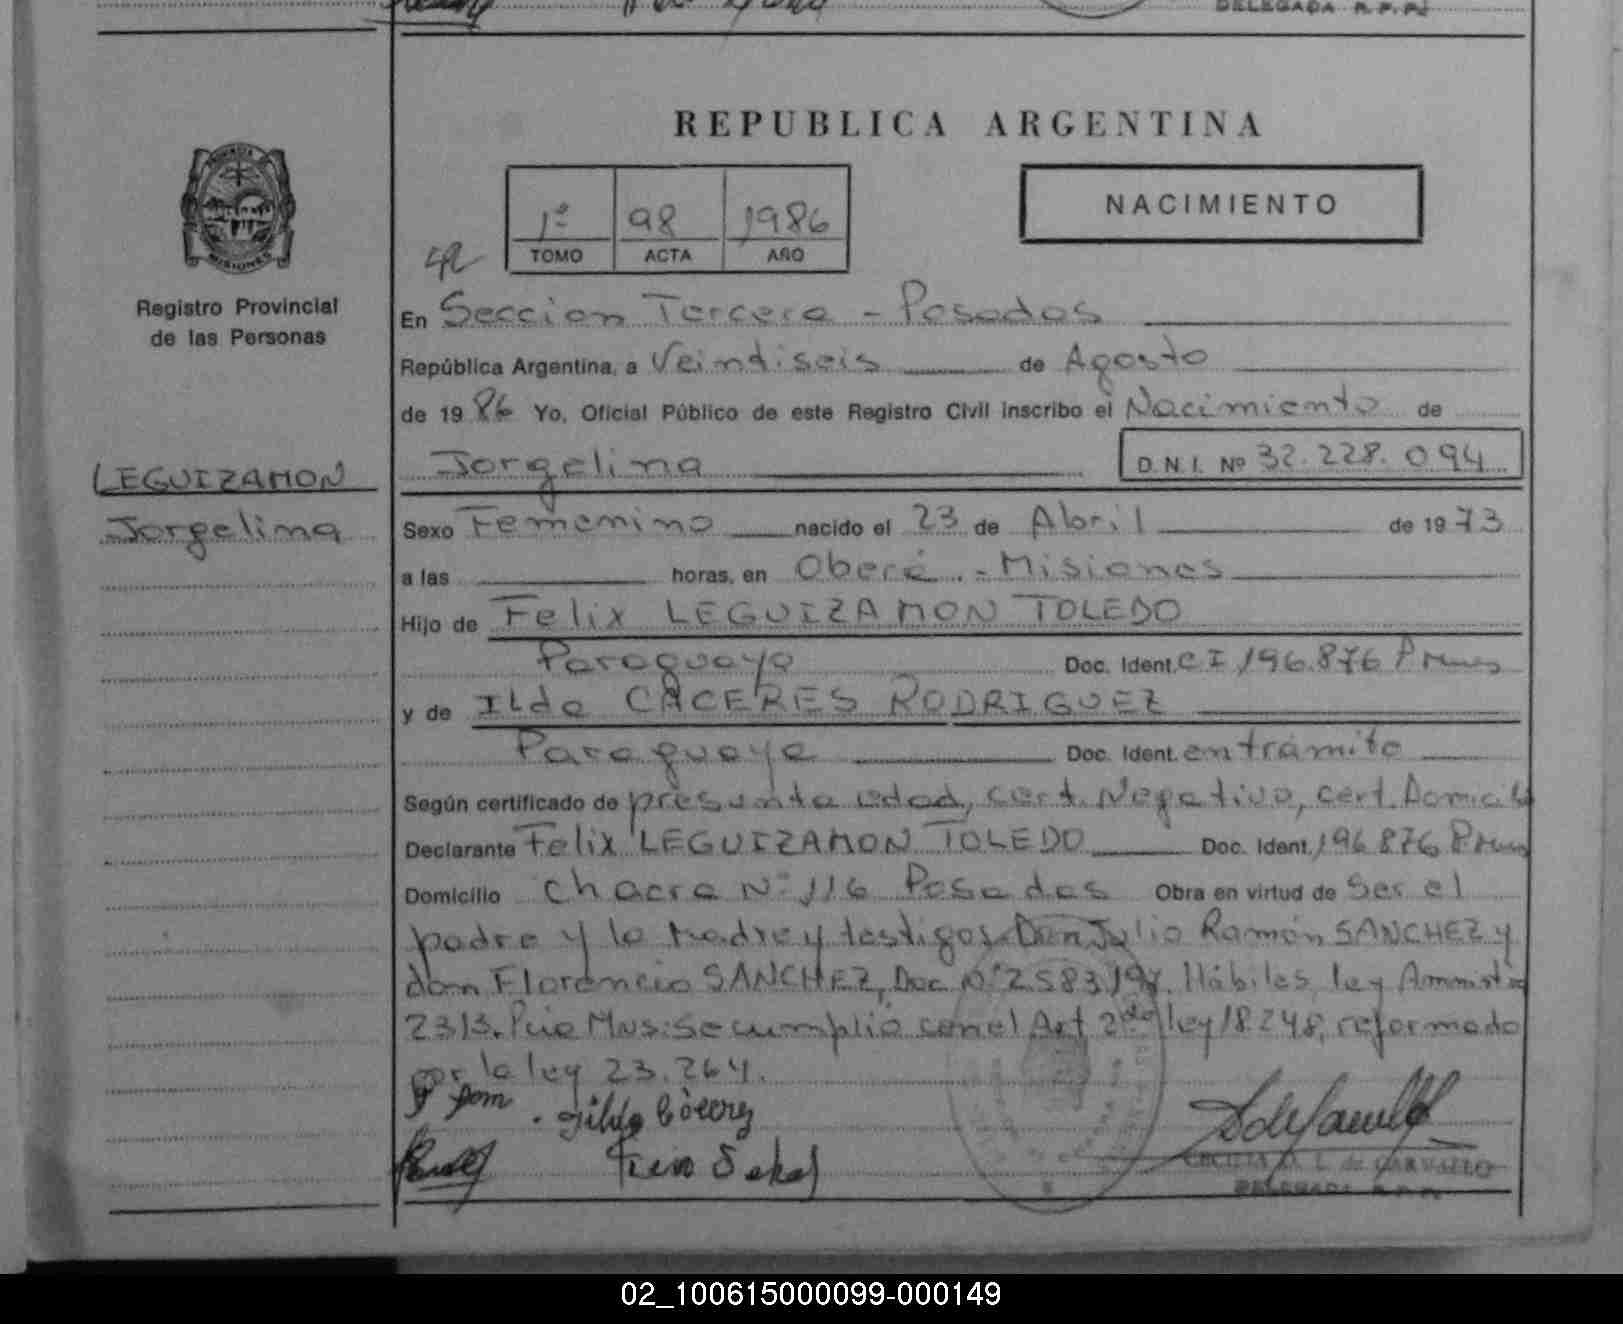 DELEGADA R.P.P.
REPUBLICA ARGENTINA
PROVINCIA
MISIONES
1º 98 1986
TOMO ACTA AÑO
NACIMIENTO
Registro Provincial
de las Personas
En Seccion Tercera - Posadas
República Argentina, a Veintiseis de Agosto
de 19 86 Yo, Oficial Público de este Registro Civil inscribo el Nacimiento de
Jorgelina D.N.I. Nº 32.228.094
LEGUIZAMON
Jorgelina
Sexo Femenino nacido el 23 de Abril de 19 73
a las horas, en Oberá - Misiones
Hijo de Felix LEGUIZAMON TOLEDO
Paraguayo Doc. Ident. CI 196.876 P Mnes
y de Ilda CACERES RODRIGUEZ
Paraguaya Doc. Ident. en trámite
Según certificado de presunta edad, cert. Negativo, cert. Domicilio
Declarante Felix LEGUIZAMON TOLEDO Doc. Ident. 196.876 P Mnes
Domicilio Chacra Nº 116 Posadas Obra en virtud de Ser el
padre y la Madre y testigos Don Julio Ramón SANCHEZ y
don Florencio SANCHEZ, Doc Nº 2.583.197. Hábiles ley Amnistia
2313. Pcia Mns: Se cumplió con el Art 2do ley 18.248, reformado
por la ley 23.264.
DE CARVALLO
DELEGADA R.P.P.
02_100615000099-000149